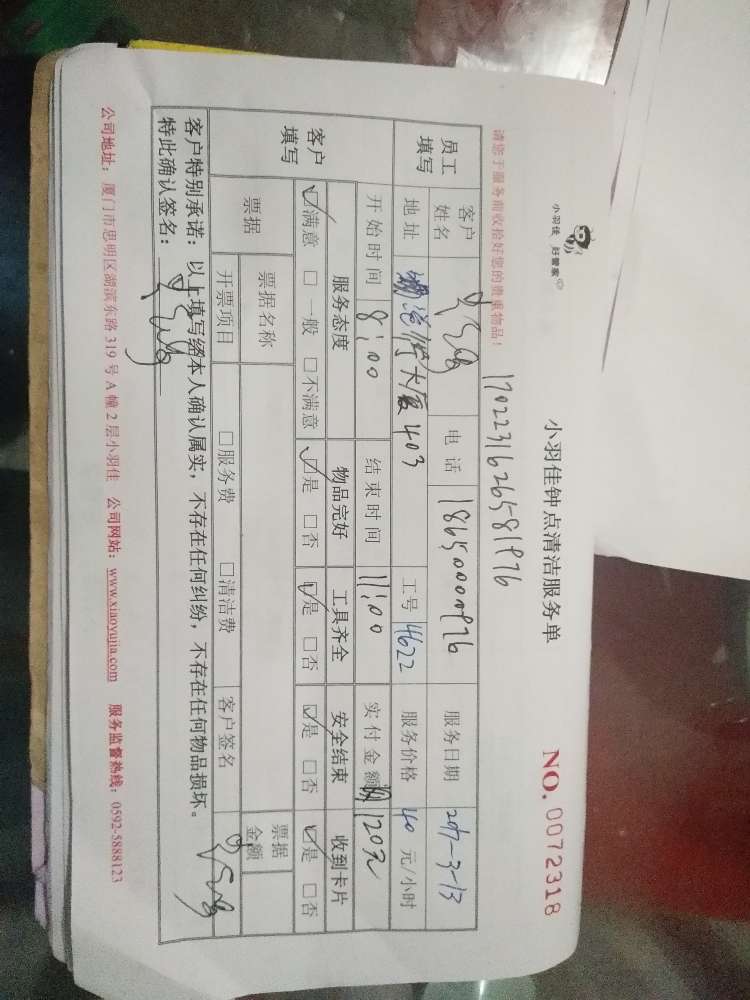 小羽佳 好管家
小羽佳钟点清洁服务单
NO. 0072318
请您于服务前收拾好您的贵重物品！
1702231626581976
员工填写
客户姓名 电话 服务日期 2017-3-13
地址 大厦403 工号 4622 服务价格 40 元/小时
开始时间 8:00 结束时间 11:00 实付金额 120元
客户填写
服务态度 物品完好 工具齐全 安全结束 收到卡片
☑满意 □一般 □不满意 ☑是 □否 ☑是 □否 ☑是 □否 ☑是 □否
票据 票据名称 票据金额
开票项目 □服务费 □清洁费 客户签名
客户特别承诺：以上填写经本人确认属实，不存在任何纠纷，不存在任何物品损坏。
特此确认签名：
公司地址：厦门市思明区湖滨东路 319 号 A 幢 2 层小羽佳 公司网站：www.xiaoyujia.com 服务监督热线：0592-5888123